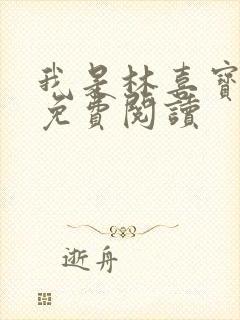 我是林喜寶
免費閱讀
逝舟